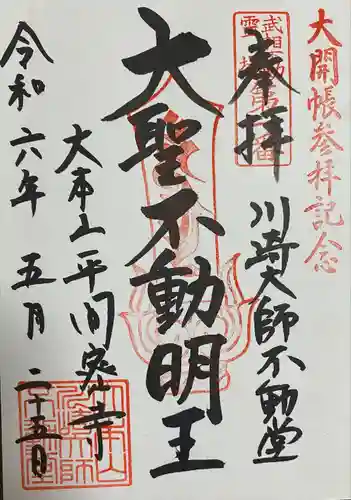 大開帳参拝記念
奉拝
川崎大師不動堂
大聖不動明王
大本山平間密寺
令和六年五月二十五日